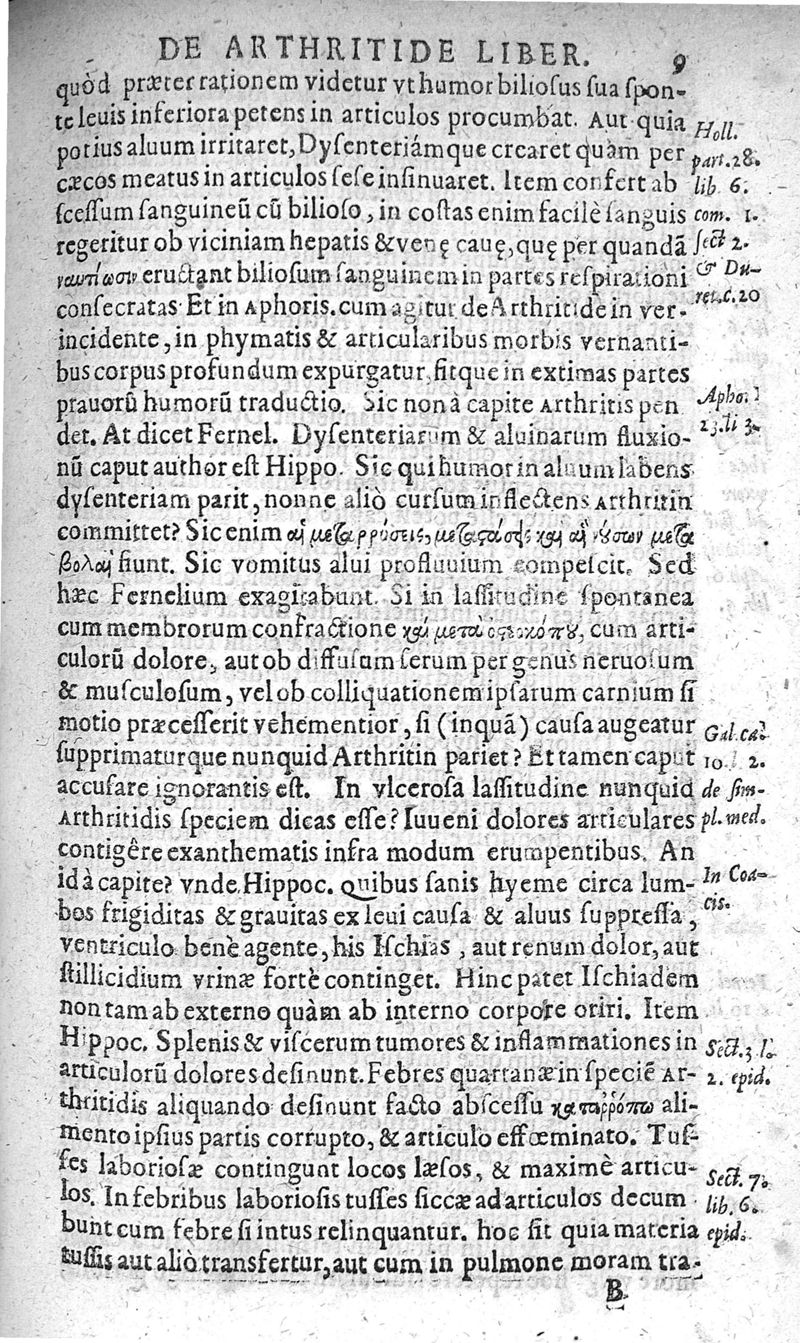 DE ARTHRITIDE LIBER. 9
quòd præter rationem videtur vt humor biliosus sua spon-
te leuis inferiora petens in articulos procumbat. Aut quia
potius aluum irritaret, Dysenteriámque crearet quàm per
cæcos meatus in articulos sese insinuaret. Item confert ab
scessum sanguineũ cũ bilioso, in costas enim facilè sanguis
regeritur ob viciniam hepatis & venę cauę, quę per quandã
eructant biliosum sanguinem in partes respirationi
consecratas. Et in Aphoris. cum agitur de Arthritide in ver-
incidente, in phymatis & articularibus morbis vernanti-
bus corpus profundum expurgatur, fitque in extimas partes
prauorũ humorũ traductio. Sic non à capite Arthritis pen
det. At dicet Fernel. Dysenteriarum & aluinarum fluxio-
nũ caput author est Hippo. Sic qui humor in aluum labens
dysenteriam parit, nonne aliò cursum inflectens Arthritin
committet? Sic enim αἱ μεταρρύσεις, μεταστάσης καὶ αἱ νούσων μετα
βολαὶ fiunt. Sic vomitus alui profluuium compescit. Sed
hæc Fernelium exagitabunt. Si in lassitudine spontanea
cum membrorum confractione καὶ μετὰ ὀστεοκόπου, cum arti-
culorũ dolore, aut ob diffusum serum per genus neruosum
& musculosum, vel ob colliquationem ipsarum carnium si
motio præcesserit vehementior, si (inquã) causa augeatur
supprimaturque nunquid Arthritin pariet? Et tamen caput
accusare ignorantis est. In vlcerosa lassitudine nunquid
Arthritidis speciem dicas esse? Iuueni dolores articulares
contigêre exanthematis infra modum erumpentibus. An
id à capite? vnde Hippoc. Quibus sanis hyeme circa lum-
bos frigiditas & grauitas ex leui causa & aluus suppressa,
ventriculo benè agente, his Ischias, aut renum dolor, aut
stillicidium vrinæ fortè continget. Hinc patet Ischiadem
non tam ab externo quàm ab interno corpore oriri. Item
Hippoc. Splenis & viscerum tumores & inflammationes in
articulorũ dolores desinunt. Febres quartanæ in speciẽ Ar-
thritidis aliquando desinunt facto abscessu ali-
mento ipsius partis corrupto, & articulo effœminato. Tus-
ses laboriosæ contingunt locos læsos, & maximè articu-
los. In febribus laboriosis tusses siccæ ad articulos decum
bunt cum febre si intus relinquantur. hoc fit quia materia
tussis aut aliò transfertur, aut cum in pulmone moram tra-
B
Holl.
part. 28.
lib. 6.
com. 1.
sect 2.
& Du-
ret. c. 20
Apho.
23. li 3.
Gal. ca.
10. l 2.
de sim-
pl. med.
In Coa-
cis.
Sect. 3 l.
2. epid.
Sect. 7.
lib. 6.
epid.